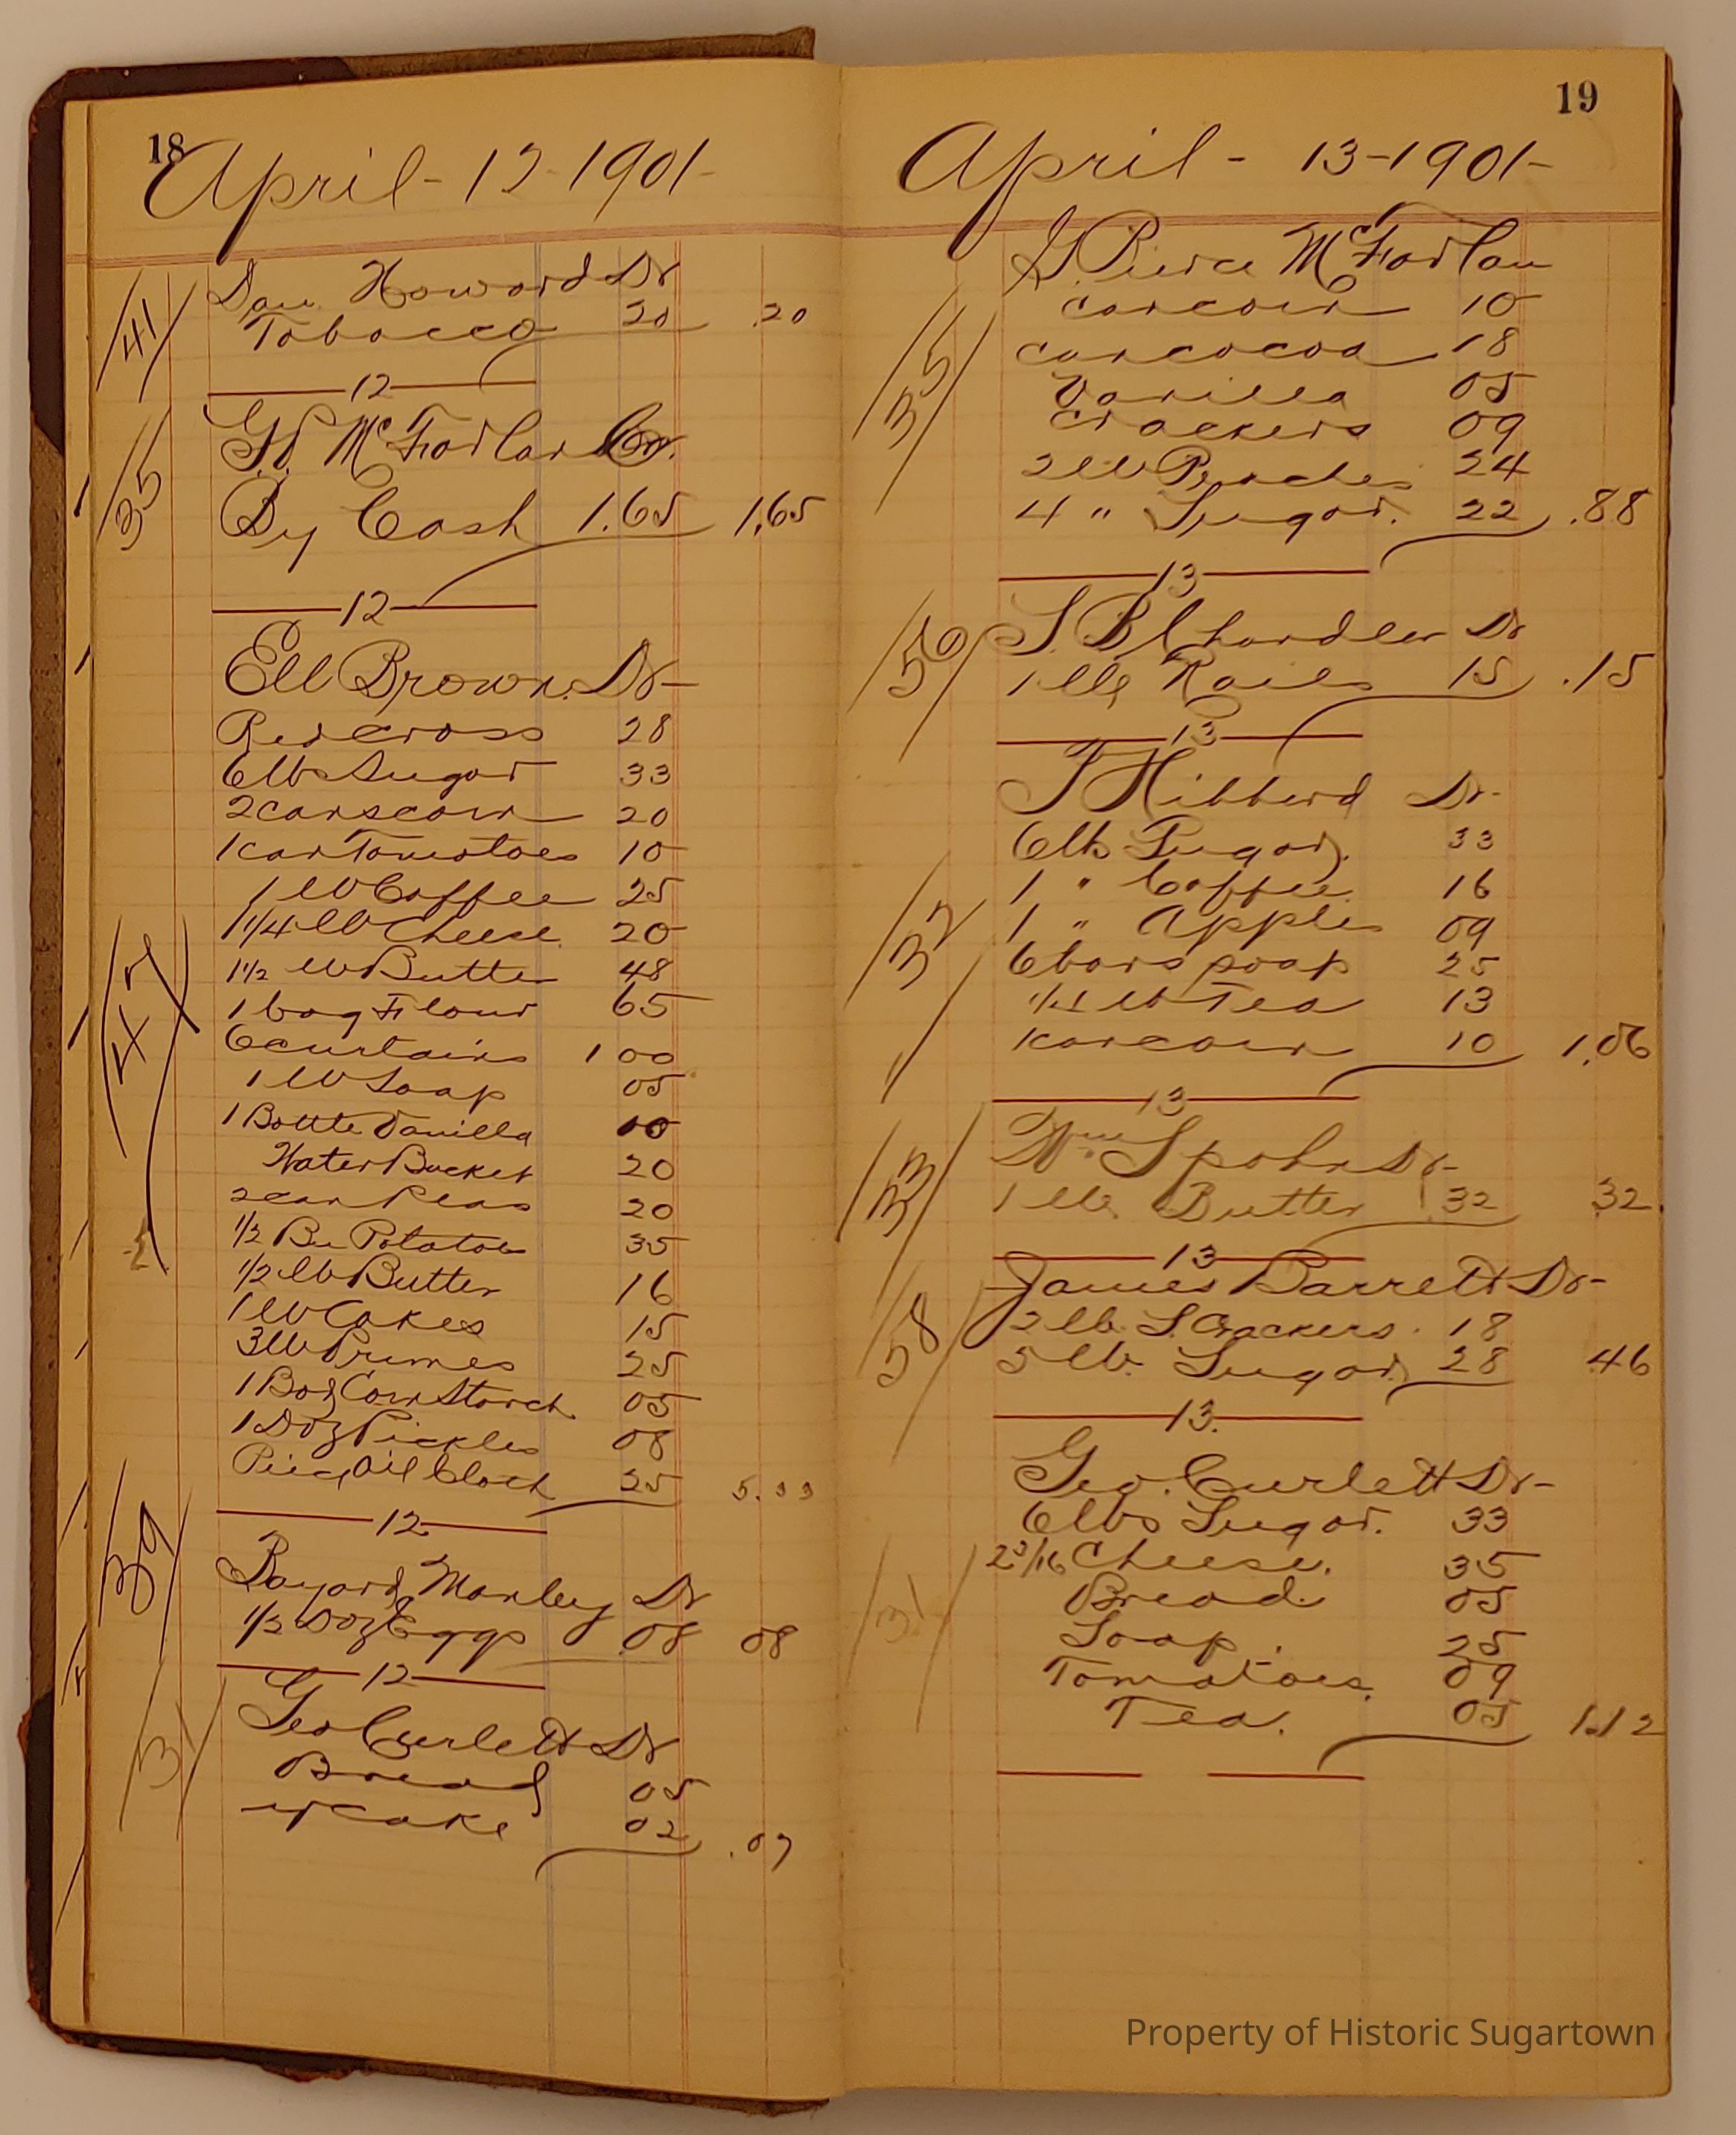 18
April - 12 - 1901 -
41
Dan Howard Dr
Tobacco 20 .20
12
35
G.P. McFarlan Cr.
By Cash 1.65 1.65
12
47
Ell Brown. Dr
Redcross 28
6lbs Sugar 33
2canscorn 20
1canTomotoes 10
1 lb Coffee 25
1 1/4 lb Cheese 20
1 1/2 lb Butter 48
1 bag Flour 65
6 curtains 1 00
1 lb Soap 05
1 Bottle Vanilla 10
Water Bucket 20
2can Peas 20
1/2 Bu Potatoes 35
1/2 lb Butter 16
1 lb Cakes 15
3lb Prunes 25
1 Box Corn Starch 05
1 Doz Pickles 08
Piece Oil Cloth 25 5.33
12
39
Bayard Manley Dr
1/2 Doz Eggs .08 08
12
31
Geo Curlett Dr
Bread 05
Cake 02 .07
19
April - 13 - 1901 -
35
G. Pierce McFarlan
cancorn 10
cancocoa 18
Vanilla 05
Crackers 09
2 lb Peaches 24
4 " Sugar. 22 .88
13
56
S. B. Chandler Dr
1 lb Nails 15 .15
13
37
T Hibberd Dr -
6lbs Sugar. 33
1 " Coffee 16
1 " Apples 09
6 bars soap 25
1/4 lb Tea 13
1cancorn 10 1.06
13
33
Wm Spohn Dr -
1 lb Butter 32 32
13
58
James Barrett Dr -
2 lb. S. Crackers. 18
5 lb. Sugar 28 46
13.
31
Geo. Curlett Dr -
6lbs Sugar. 33
2 3/16 Cheese. 35
Bread. 05
Soap. 25
Tomatoes. 09
Tea. 05 1.12
Property of Historic Sugartown